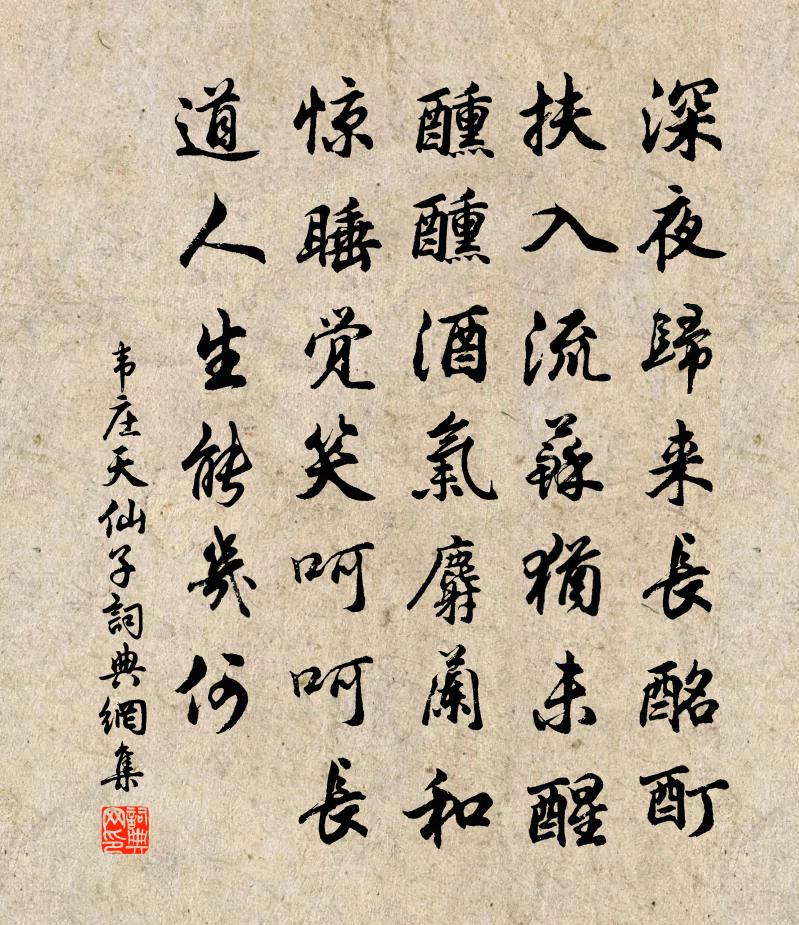 深夜歸来長酩酊
扶入流蘇猶未醒
醺醺酒氣麝蘭和
惊睡觉笑呵呵長
道人生能幾何
韦庄天仙子詞典網集
詞典网印